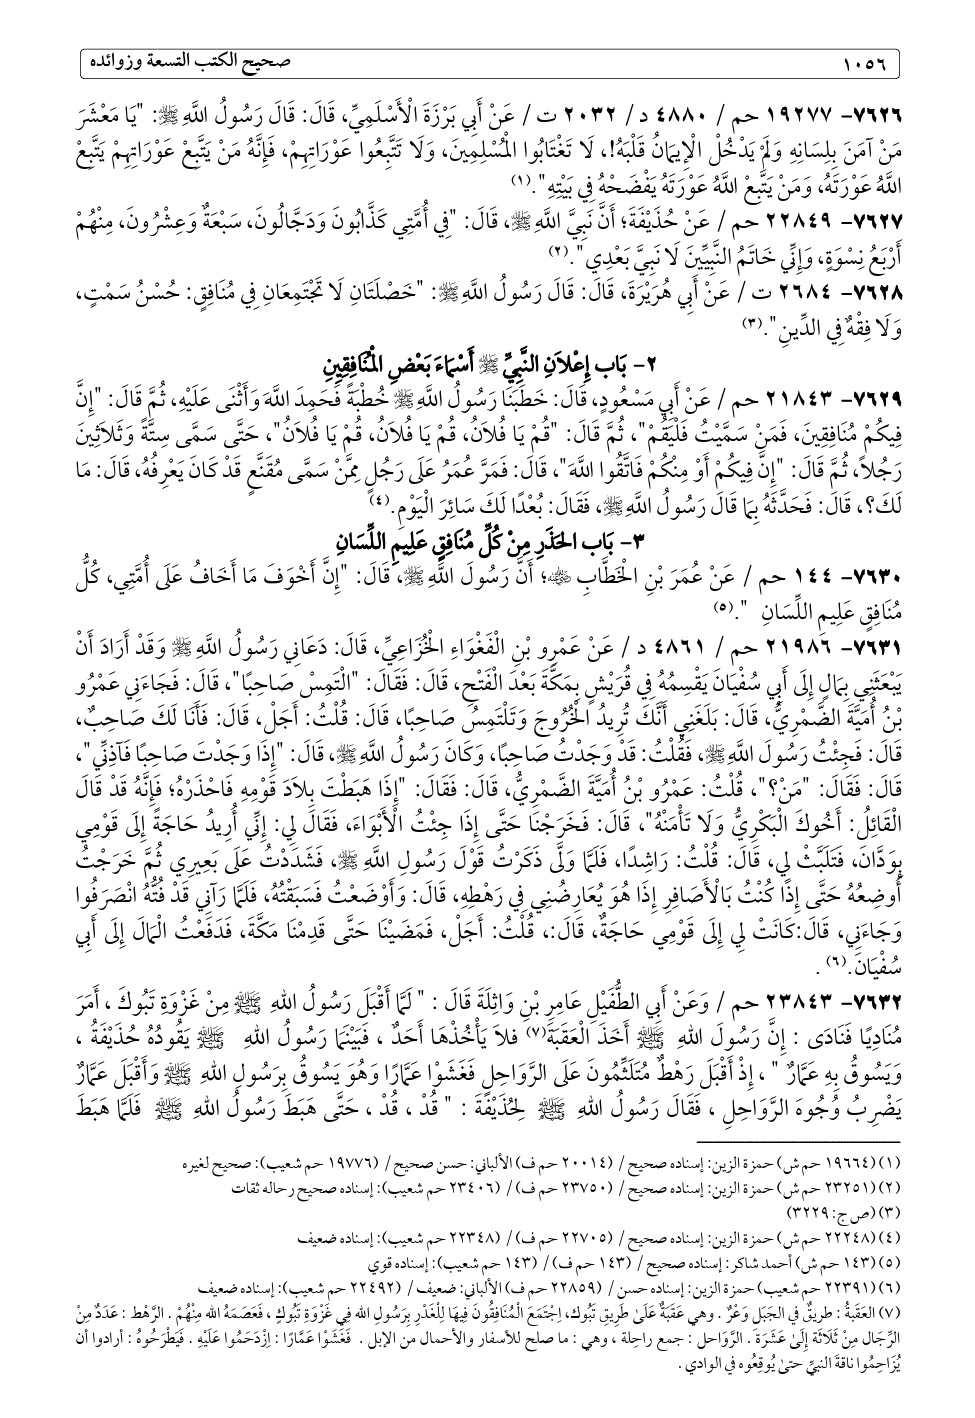 ١٠٥٦ صحيح الكتب التسعة وزوائده
٧٦٢٦- ١٩٢٧٧ حم / ٤٨٨٠ د/ ٢٠٣٢ ت / عَنْ أَبِي بَرْزَةَ الْأَسْلَمِيِّ، قَالَ: قَالَ رَسُولُ اللَّهِ ﷺ: "يَا مَعْشَرَ
مَنْ آمَنَ بِلِسَانِهِ وَلَمْ يَدْخُلْ الْإِيمَانُ قَلْبَهُ!، لَا تَغْتَابُوا الْمُسْلِمِينَ، وَلَا تَتَّبِعُوا عَوْرَاتِهِمْ، فَإِنَّهُ مَنْ يَتَّبِعْ عَوْرَاتِهِمْ يَتَّبِعْ
اللَّهُ عَوْرَتَهُ، وَمَنْ يَتَّبِعْ اللَّهُ عَوْرَتَهُ يَفْضَحْهُ فِي بَيْتِهِ".(١)
٧٦٢٧- ٢٢٨٤٩ حم / عَنْ حُذَيْفَةَ؛ أَنَّ نَبِيَّ اللَّهِ ﷺ، قَالَ: "فِي أُمَّتِي كَذَّابُونَ وَدَجَّالُونَ، سَبْعَةٌ وَعِشْرُونَ، مِنْهُمْ
أَرْبَعُ نِسْوَةٍ، وَإِنِّي خَاتَمُ النَّبِيِّينَ لَا نَبِيَّ بَعْدِي".(٢)
٧٦٢٨- ٢٦٨٤ ت / عَنْ أَبِي هُرَيْرَةَ، قَالَ: قَالَ رَسُولُ اللَّهِ ﷺ: "خَصْلَتَانِ لَا تَجْتَمِعَانِ فِي مُنَافِقٍ: حُسْنُ سَمْتٍ،
وَلَا فِقْهٌ فِي الدِّينِ".(٣)
٢- بَاب إِعْلاَنِ النَّبِيِّ ﷺ أَسْمَاءَ بَعْضِ الْمُنَافِقِينِ
٧٦٢٩- ٢١٨٤٣ حم / عَنْ أَبِي مَسْعُودٍ، قَالَ: خَطَبَنَا رَسُولُ اللَّهِ ﷺ خُطْبَةً فَحَمِدَ اللَّهَ وَأَثْنَى عَلَيْهِ، ثُمَّ قَالَ: "إِنَّ
فِيكُمْ مُنَافِقِينَ، فَمَنْ سَمَّيْتُ فَلْيَقُمْ"، ثُمَّ قَالَ: "قُمْ يَا فُلاَنُ، قُمْ يَا فُلاَنُ، قُمْ يَا فُلاَنُ"، حَتَّى سَمَّى سِتَّةً وَثَلاَثِينَ
رَجُلاً، ثُمَّ قَالَ: "إِنَّ فِيكُمْ أَوْ مِنْكُمْ فَاتَّقُوا اللَّهَ"، قَالَ: فَمَرَّ عُمَرُ عَلَى رَجُلٍ مِمَّنْ سَمَّى مُقَنَّعٍ قَدْ كَانَ يَعْرِفُهُ، قَالَ: مَا
لَكَ؟، قَالَ: فَحَدَّثَهُ بِمَا قَالَ رَسُولُ اللَّهِ ﷺ، فَقَالَ: بُعْدًا لَكَ سَائِرَ الْيَوْمِ.(٤)
٣- بَاب الحَذَرِ مِنْ كُلِّ مُنَافِقٍ عَلِيمِ اللِّسَانِ
٧٦٣٠- ١٤٤ حم / عَنْ عُمَرَ بْنِ الْخَطَّابِ ؓ؛ أَنَّ رَسُولَ اللَّهِ ﷺ، قَالَ: "إِنَّ أَخْوَفَ مَا أَخَافُ عَلَى أُمَّتِي، كُلُّ
مُنَافِقٍ عَلِيمِ اللِّسَانِ ".(٥)
٧٦٣١- ٢١٩٨٦ حم / ٤٨٦١ د / عَنْ عَمْرِو بْنِ الْفَغْوَاءِ الْخُزَاعِيِّ، قَالَ: دَعَانِي رَسُولُ اللَّهِ ﷺ وَقَدْ أَرَادَ أَنْ
يَبْعَثَنِي بِمَالٍ إِلَى أَبِي سُفْيَانَ يَقْسِمُهُ فِي قُرَيْشٍ بِمَكَّةَ بَعْدَ الْفَتْحِ، قَالَ: فَقَالَ: "الْتَمِسْ صَاحِبًا"، قَالَ: فَجَاءَنِي عَمْرُو
بْنُ أُمَيَّةَ الضَّمْرِيُّ، قَالَ: بَلَغَنِي أَنَّكَ تُرِيدُ الْخُرُوجَ وَتَلْتَمِسُ صَاحِبًا، قَالَ: قُلْتُ: أَجَلْ، قَالَ: فَأَنَا لَكَ صَاحِبٌ،
قَالَ: فَجِئْتُ رَسُولَ اللَّهِ ﷺ، فَقُلْتُ: قَدْ وَجَدْتُ صَاحِبًا، وَكَانَ رَسُولُ اللَّهِ ﷺ، قَالَ: "إِذَا وَجَدْتَ صَاحِبًا فَآذِنِّي"،
قَالَ: فَقَالَ: "مَنْ؟"، قُلْتُ: عَمْرُو بْنُ أُمَيَّةَ الضَّمْرِيُّ، قَالَ: فَقَالَ: "إِذَا هَبَطْتَ بِلاَدَ قَوْمِهِ فَاحْذَرْهُ؛ فَإِنَّهُ قَدْ قَالَ
الْقَائِلُ: أَخُوكَ الْبَكْرِيُّ وَلَا تَأْمَنْهُ"، قَالَ: فَخَرَجْنَا حَتَّى إِذَا جِئْتُ الْأَبْوَاءَ، فَقَالَ لِي: إِنِّي أُرِيدُ حَاجَةً إِلَى قَوْمِي
بِوَدَّانَ، فَتَلَبَّثْ لِي، قَالَ: قُلْتُ: رَاشِدًا، فَلَمَّا وَلَّى ذَكَرْتُ قَوْلَ رَسُولِ اللَّهِ ﷺ، فَشَدَدْتُ عَلَى بَعِيرِي ثُمَّ خَرَجْتُ
أُوضِعُهُ حَتَّى إِذَا كُنْتُ بِالْأَصَافِرِ إِذَا هُوَ يُعَارِضُنِي فِي رَهْطِهِ، قَالَ: وَأَوْضَعْتُ فَسَبَقْتُهُ، فَلَمَّا رَآنِي قَدْ فُتُّهُ انْصَرَفُوا
وَجَاءَنِي، قَالَ:كَانَتْ لِي إِلَى قَوْمِي حَاجَةٌ، قَالَ:، قُلْتُ: أَجَلْ، فَمَضَيْنَا حَتَّى قَدِمْنَا مَكَّةَ، فَدَفَعْتُ الْمَالَ إِلَى أَبِي
سُفْيَانَ.(٦) .
٧٦٣٢- ٢٣٨٤٣ حم / وَعَنْ أَبِي الطُّفَيْلِ عَامِرِ بْنِ وَاثِلَةَ قَالَ : " لَمَّا أَقْبَلَ رَسُولُ اللهِ ﷺ مِنْ غَزْوَةِ تَبُوكَ ، أَمَرَ
مُنَادِيًا فَنَادَى : إِنَّ رَسُولَ اللهِ ﷺ أَخَذَ الْعَقَبَةَ(٧) فلاَ يَأْخُذْهَا أَحَدٌ ، فَبَيْنَمَا رَسُولُ اللهِ ﷺ يَقُودُهُ حُذَيْفَةُ ،
وَيَسُوقُ بِهِ عَمَّارٌ " ، إِذْ أَقْبَلَ رَهْطٌ مُتَلَثِّمُونَ عَلَى الرَّوَاحِلِ فَغَشَوْا عَمَّارًا وَهُوَ يَسُوقُ بِرَسُولِ اللهِ ﷺ وَأَقْبَلَ عَمَّارٌ
يَضْرِبُ وُجُوهَ الرَّوَاحِلِ ، فَقَالَ رَسُولُ اللهِ ﷺ لِحُذَيْفَةَ : " قُدْ ، قُدْ ، حَتَّى هَبَطَ رَسُولُ اللهِ ﷺ فَلَمَّا هَبَطَ
(١) (١٩٦٦٤ حم ش) حمزة الزين: إسناده صحيح / (٢٠٠١٤ حم ف) الألباني: حسن صحيح / (١٩٧٧٦ حم شعيب): صحيح لغيره
(٢) (٢٣٢٥١ حم ش) حمزة الزين: إسناده صحيح / (٢٣٧٥٠ حم ف) / (٢٣٤٠٦ حم شعيب): إسناده صحيح رحاله ثقات
(٣) (ص ج: ٣٢٢٩)
(٤) (٢٢٢٤٨ حم ش) حمزة الزين: إسناده صحيح / (٢٢٧٠٥ حم ف) / (٢٢٣٤٨ حم شعيب): إسناده ضعيف
(٥) (١٤٣ حم ش) أحمد شاكر: إسناده صحيح / (١٤٣ حم ف) / (١٤٣ حم شعيب): إسناده قوي
(٦) (٢٢٣٩١ حم شعيب) حمزة الزين: إسناده حسن / (٢٢٨٥٩ حم ف) الألباني: ضعيف / (٢٢٤٩٢ حم شعيب): إسناده ضعيف
(٧) العَقَبةُ : طريقٌ في الجَبَل وَعْرٌ . وهي عَقَبَةٌ عَلىٰ طَرِيقِ تَبُوكَ، اِجْتَمَعَ الْمُنَافِقُونَ فِيهَا لِلْغَدْرِ بِرَسُولِ الله فِي غَزْوَةِ تَبُوكَ ، فَعَصَمَهُ الله مِنْهُمْ . الرَّهْط : عَدَدٌ مِنَ
الرِّجَالِ مِنْ ثَلَاثَة إِلىٰ عَشَرَةَ . الرَّوَاحل : جمع راحِلة ، وهي : ما صلح للأسفار والأحمال من الإبل . فَغَشَوْا عَمَّارًا : اِزْدَحَمُوا عَلَيْهِ . فَيَطْرَحُوهُ : أرادوا أن
يُزَاحِمُوا ناقة النبيّ حتىٰ يُوقِعُوه في الوادي .